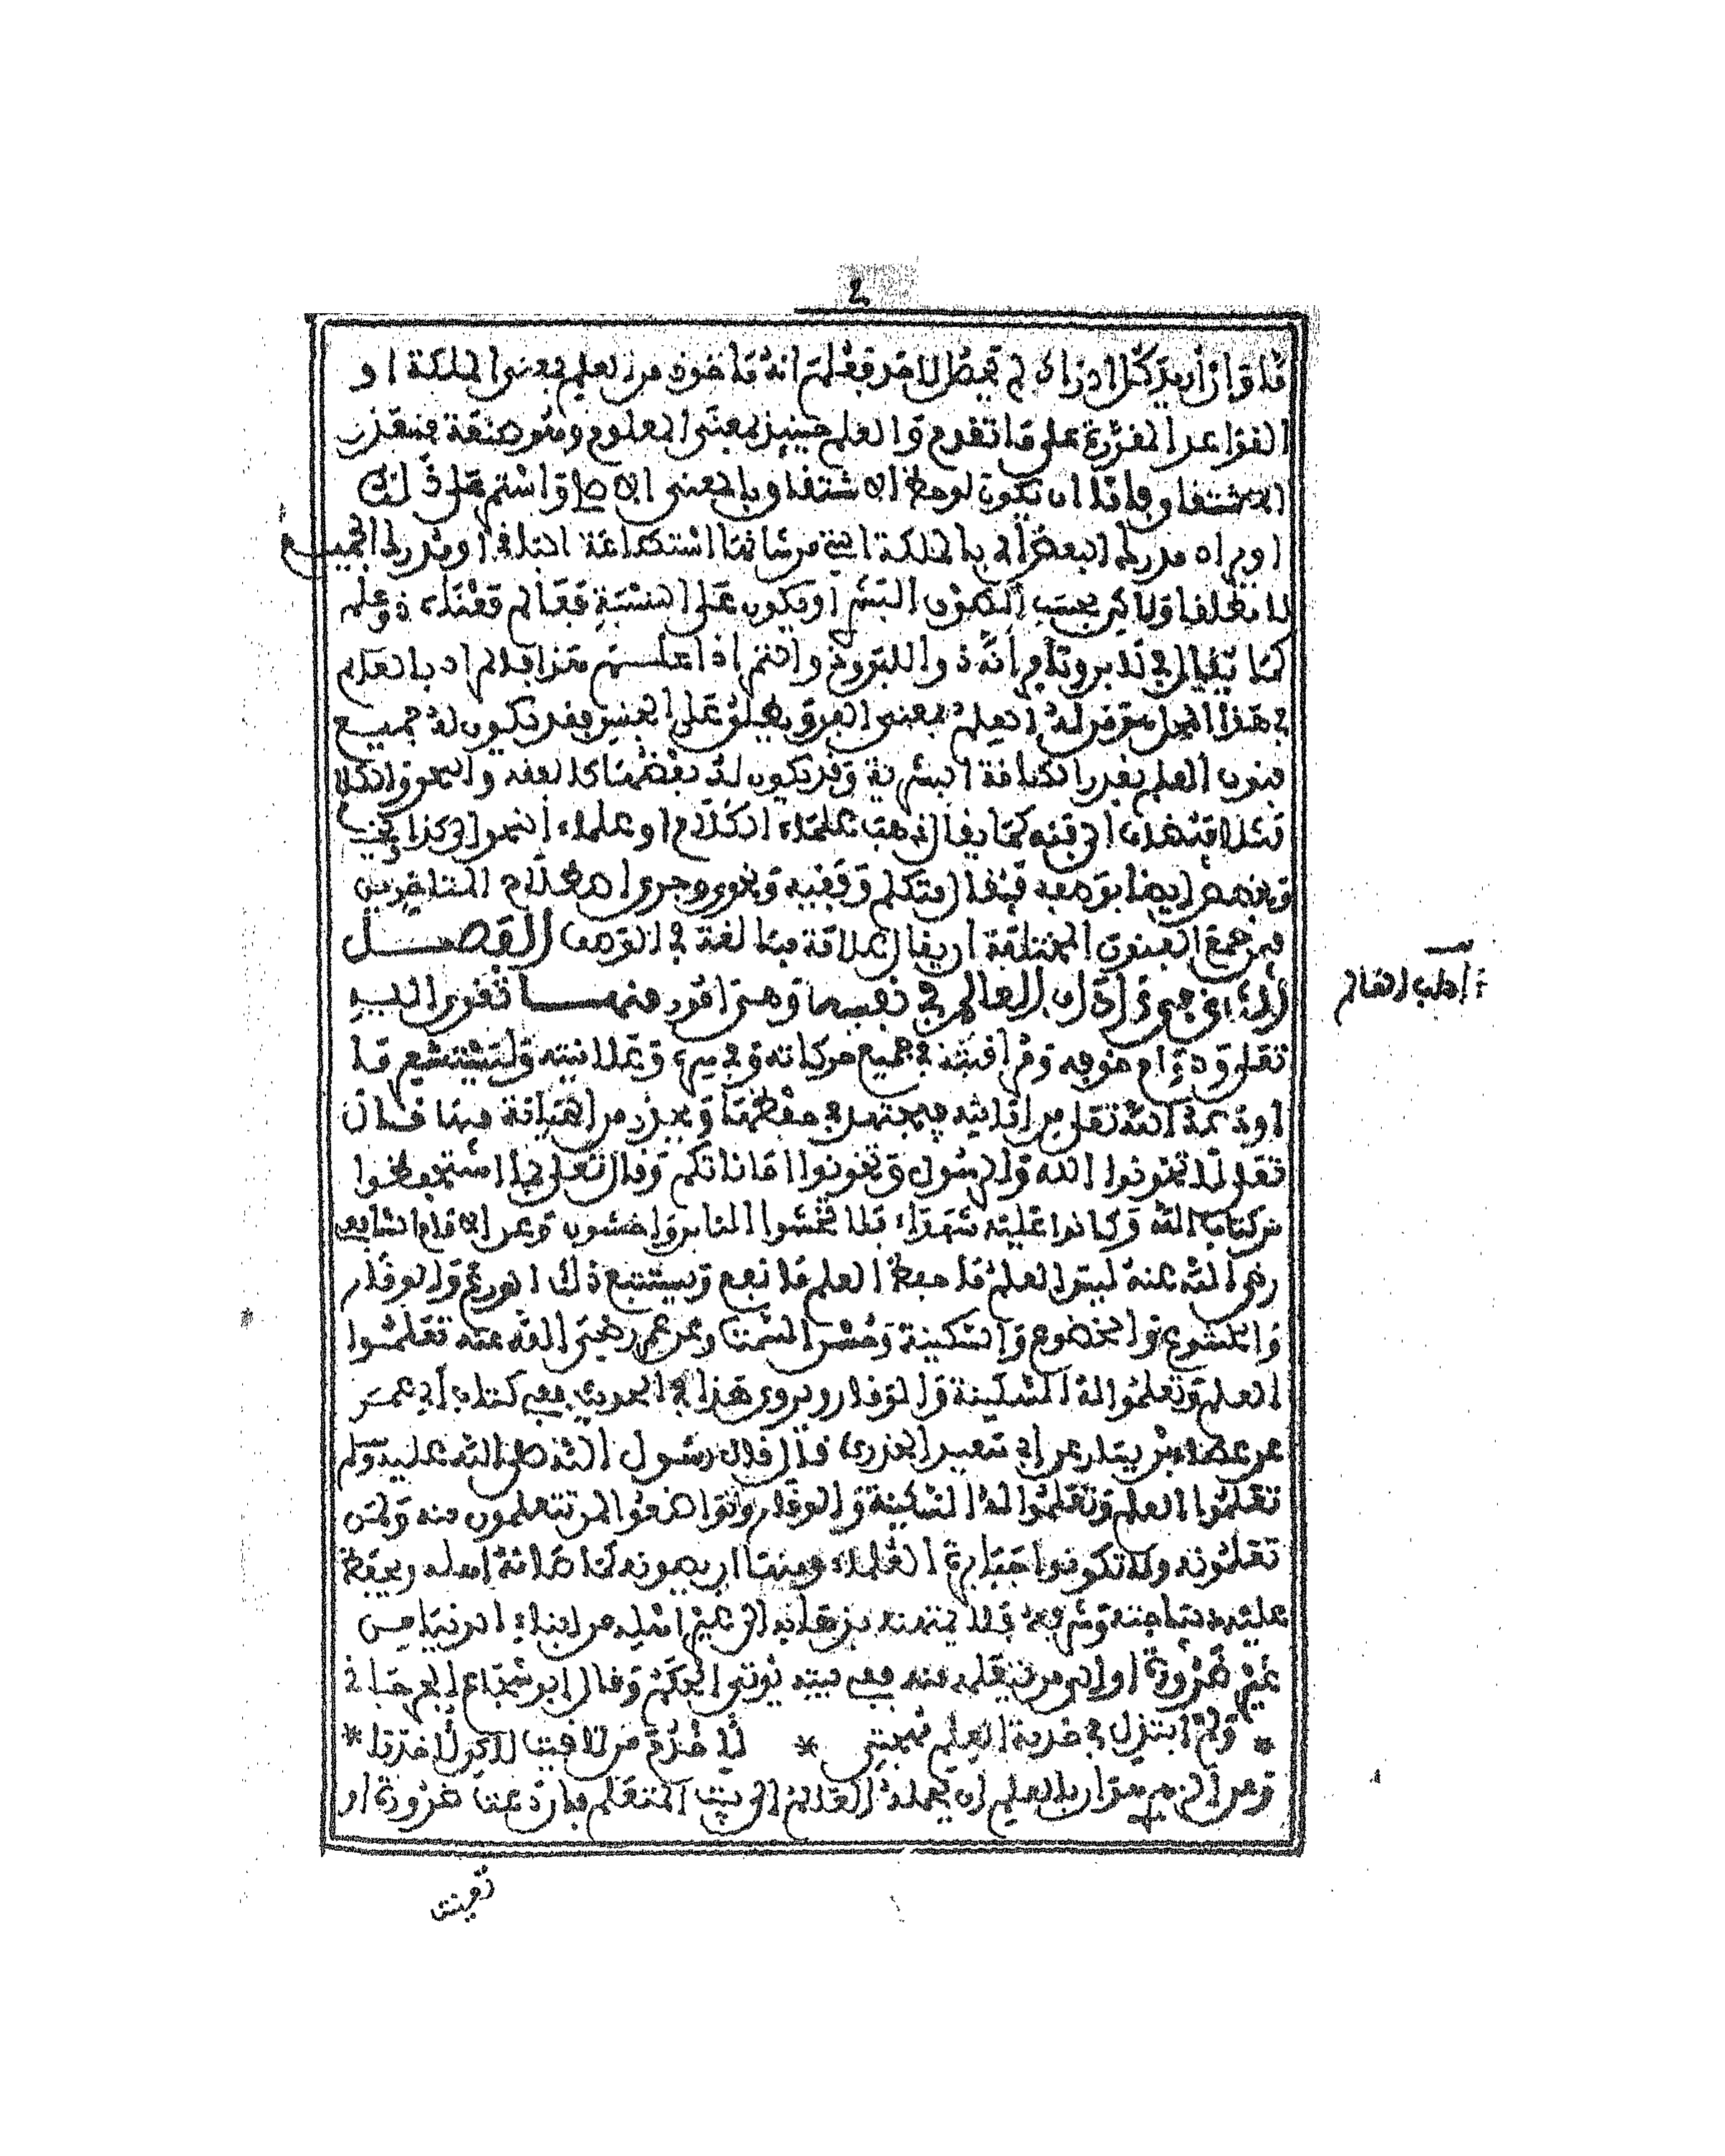 2
فلا وان أريد كل ادراك لم تحصل لأحد فعالم انه مأخوذ من العلم بمعنى الملكة او
القواعد المقررة على ما تقدم والعلم حينئذ بمعنى المعلوم وهو صفة فيتعذر
الاشتقاق وإما ان يكون لوحظ الاشتقاق بالمعنى الاصل واستمر على ذلك
او يراد مدرك البعض أي بالملكة التي من شأنها استحداثة التلافي او مدرك الجميع
لا مطلقا ولاكن بحسب الطوق البشري او يكون على النسبة فعالم معناه ذو علم
كما يقال في تلابن وتامر انه ذو اللبن وذو التمر اذا علمت هذا فالمراد بالعالم
في هذا المحل من له العلم بمعنى يطلق على الجنس فقد يكون له جميع
فنون العلم بقدر الطاقة البشرية وقد يكون له بعضها كالفقه والنحو والكلا
مثلا الى فنه كما يقال ذهب علماء الكلام او علماء النحو الى كذا
ايضا بوصفه فيقال متكلم وفقيه ونحوي وجرى اصطلاح المتأخرين
فيمن جمع الفنون المختلفة ان يقال علامة مبالغة في الوصف الفصل
الثاني في آداب العالم في نفسه وهي أمور منها تقوى الله
تعلى ودوام خوفه ومراقبته في جميع حركاته وفي سره وعلانيته وليستشعر ما
اودعه الله تعلى من أمانته فيجتهد في حفظها ويحذر من الخيانة فيها قال
تعلى لا تخونوا الله والرسول وتخونوا اماناتكم وقال تعلى بما استحفظوا
من كتاب الله وكانوا عليه شهداء فلا تخشوا الناس واخشون وعن الامام الشافعي
رضي الله عنه ليس العلم ما حفظ العلم ما نفع ويستتبع ذلك الورع والوقار
والخشوع والخضوع والسكينة وحسن السمت وعن عمر رضي الله عنه تعلموا
العلم وتعلموا له السكينة والوقار ويروى هذا في الحديث ففي كتاب أبي عمر
عن عطاء بن يسار عن ابي سعيد الخدري قال قال رسول الله صلى الله عليه وسلم
تعلموا العلم وتعلموا له السكينة والوقار وتواضعوا لمن تتعلمون منه ولمن
تعلمونه ولا تكونوا جبابرة العلماء ومنها ان يصونه كما صانه اهله ويحفظ
عليه وشرفه فلا يمتهنه بذهابه الى غير اهله من ابناء الدنيا من
غير ضرورة او الى من يتعلمه منه ففي بيته يؤتى الحكم وقال ابو شجاع الجرجاني
* ولم ابتذل في خدمة العلم مهجتي * لأخدم من لاقيت لاكن لأخدما *
وعن الزهري هوان بالعلم ان يحمله العالم الى بيت المتعلم فإن دعت ضرورة او
آداب العالم